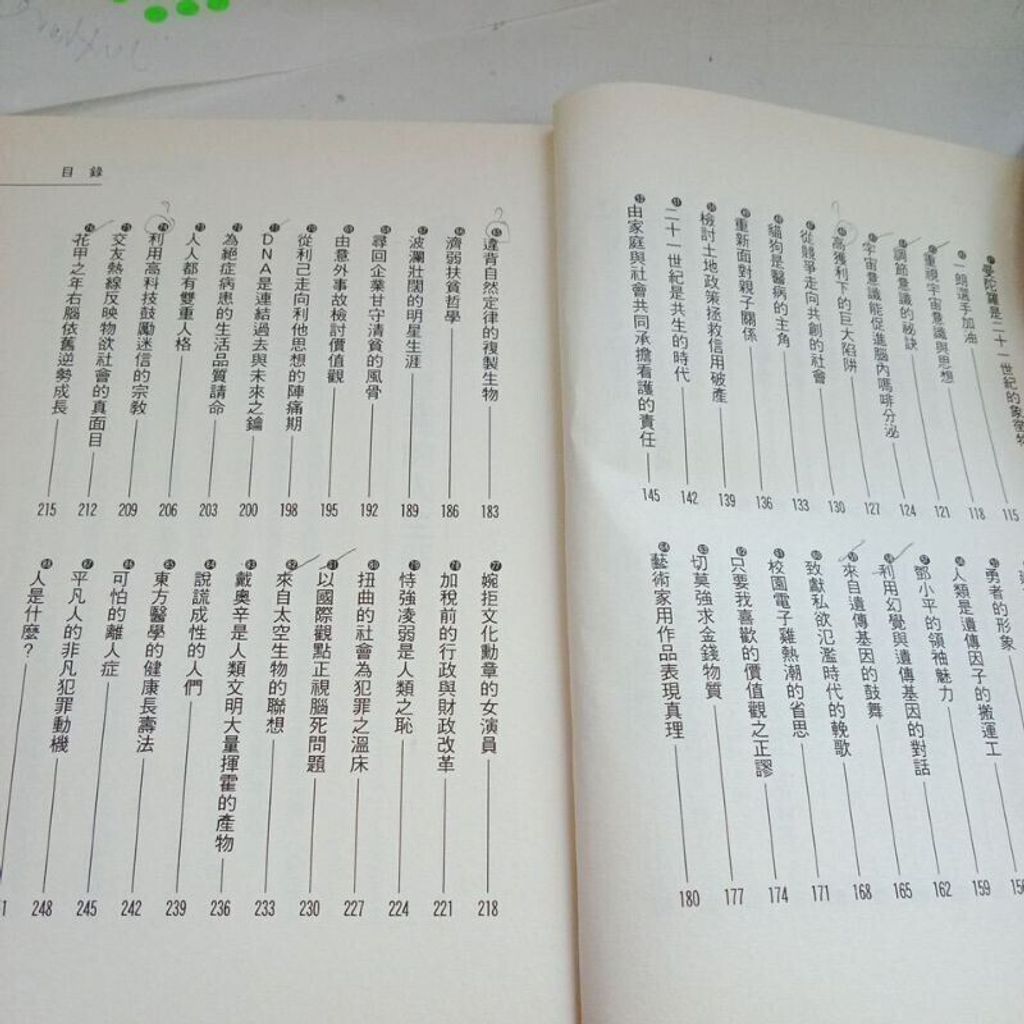 41 曼陀羅是二十一世紀的象徵物
42 一朗選手加油 115
43 重視宇宙意識與思想 118
44 調節意識的祕訣 121
45 宇宙意識能促進腦內嗎啡分泌 124
46 高獲利下的巨大陷阱 127
47 從競爭走向共創的社會 130
48 貓狗是醫病的主角 133
49 重新面對親子關係 136
50 檢討土地政策拯救信用破產 139
51 二十一世紀是共生的時代 142
52 由家庭與社會共同承擔看護的責任 145
55 勇者的形象
56 人類是遺傳因子的搬運工
57 鄧小平的領袖魅力 159
58 利用幻覺與遺傳基因的對話 162
59 來自遺傳基因的鼓舞 165
60 致獻私欲氾濫時代的輓歌 168
61 校園電子雞熱潮的省思 171
62 只要我喜歡的價值觀之正謬 174
63 切莫強求金錢物質 177
64 藝術家用作品表現真理 180
目錄
65 違背自然定律的複製生物 183
66 濟弱扶貧哲學 186
67 波瀾壯闊的明星生涯 189
68 尋回企業甘守清貧的風骨 192
69 由意外事故檢討價值觀 195
70 從利己走向利他思想的陣痛期 198
71 DNA是連結過去與未來之鑰 200
72 為絕症病患的生活品質請命 203
73 人人都有雙重人格 206
74 利用高科技鼓勵迷信的宗教 209
75 交友熱線反映物欲社會的真面目 212
76 花甲之年右腦依舊逆勢成長 215
77 婉拒文化勳章的女演員 218
78 加稅前的行政與財政改革 221
79 恃強凌弱是人類之恥 224
80 扭曲的社會為犯罪之溫床 227
81 以國際觀點正視腦死問題 230
82 來自太空生物的聯想 233
83 戴奧辛是人類文明大量揮霍的產物 236
84 說謊成性的人們 239
85 東方醫學的健康長壽法 242
86 可怕的離人症 245
87 平凡人的非凡犯罪動機 248
88 人是什麼？